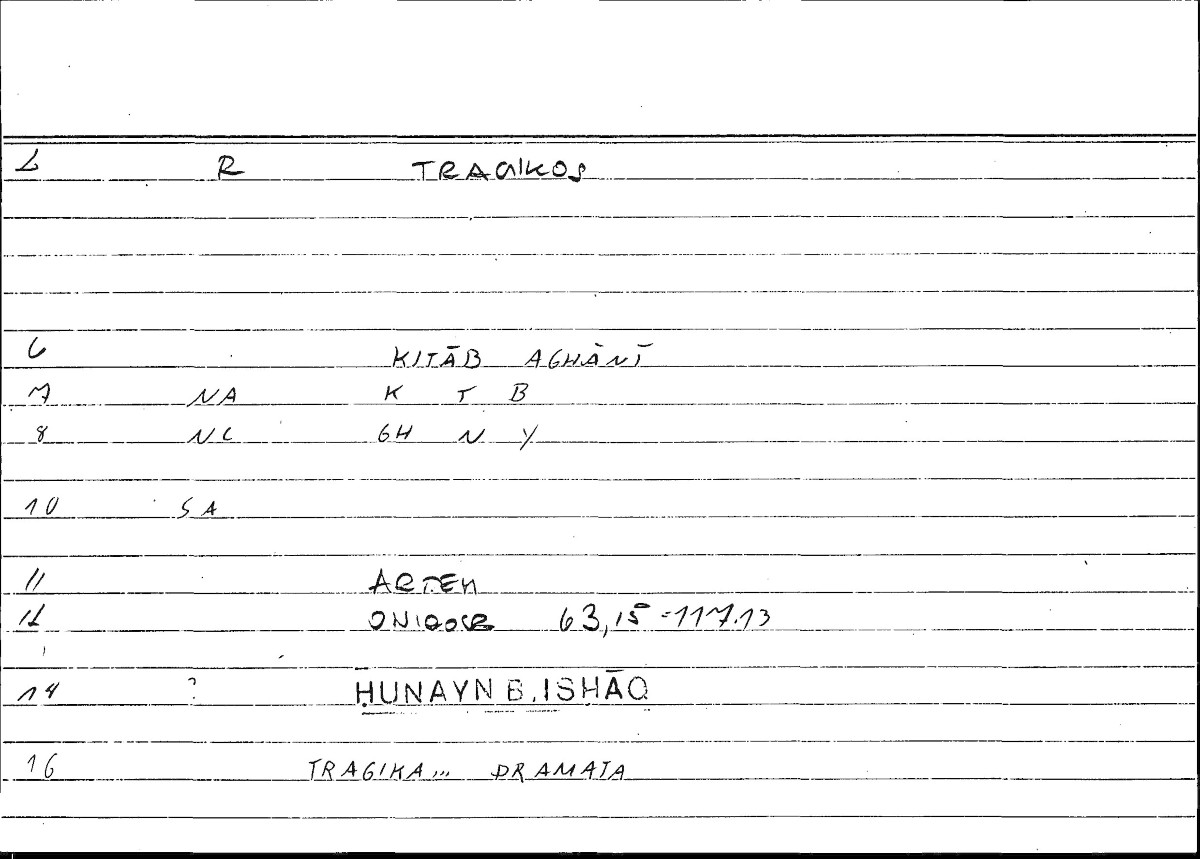 2 R TRAGIKOS
6 KITĀB AGHĀNĪ
7 NA K T B
8 NC GH N Y
10 SA
11 ARTEM
12 ONIROCR 63,15-117.13
14 ? ḤUNAYN B. ISḤĀQ
16 TRAGIKA... DRAMATA